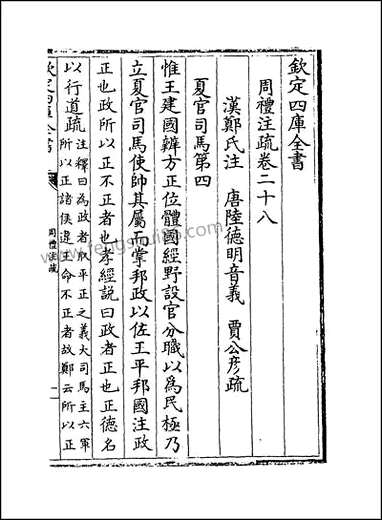 欽定四庫全書
周禮注疏卷二十八
漢鄭氏注 唐陸德明音義 賈公彦疏
夏官司馬第四
惟王建國辨方正位體國經野設官分職以為民極乃
立夏官司馬使帥其屬而掌邦政以佐王平邦國注政
正也政所以正不正者也孝經說曰政者正也正德名
以行道疏注釋曰為政者取平正之義大司馬主六軍
所以正諸侯違王命不正者故鄭云所以正
欽定四庫全書
周禮注疏
一